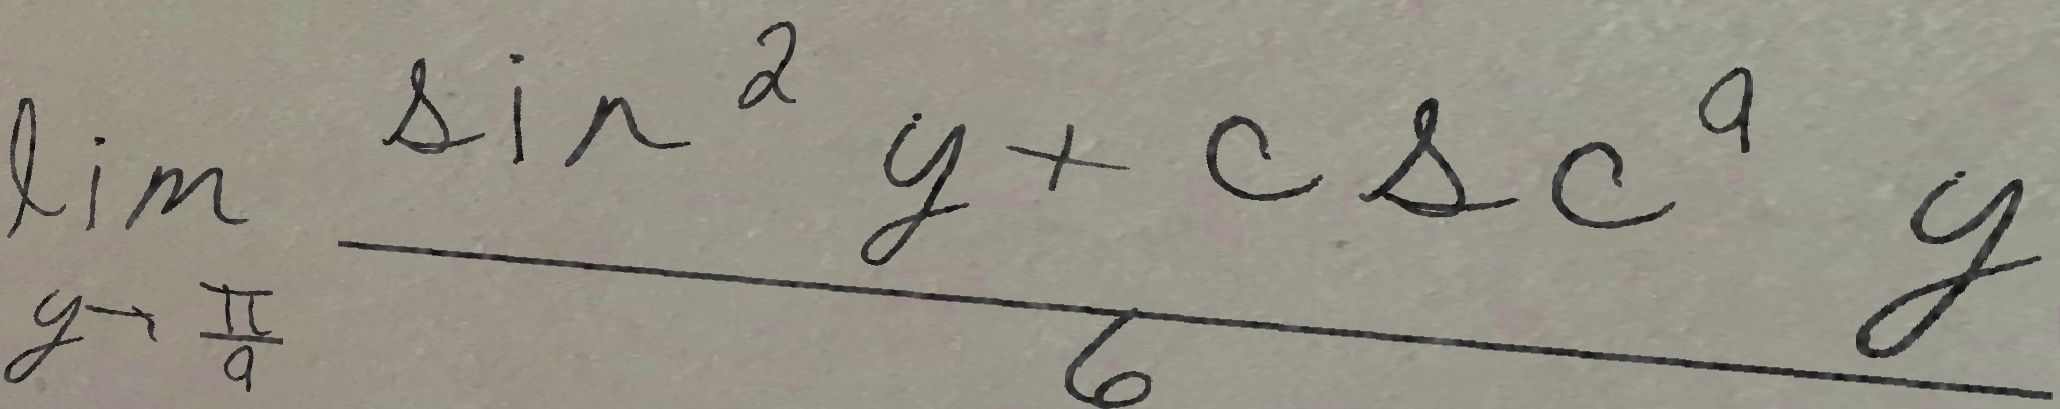 \lim_{y \to \frac{\pi}{9}} \frac{\sin^2 y + \csc^9 y}{6}